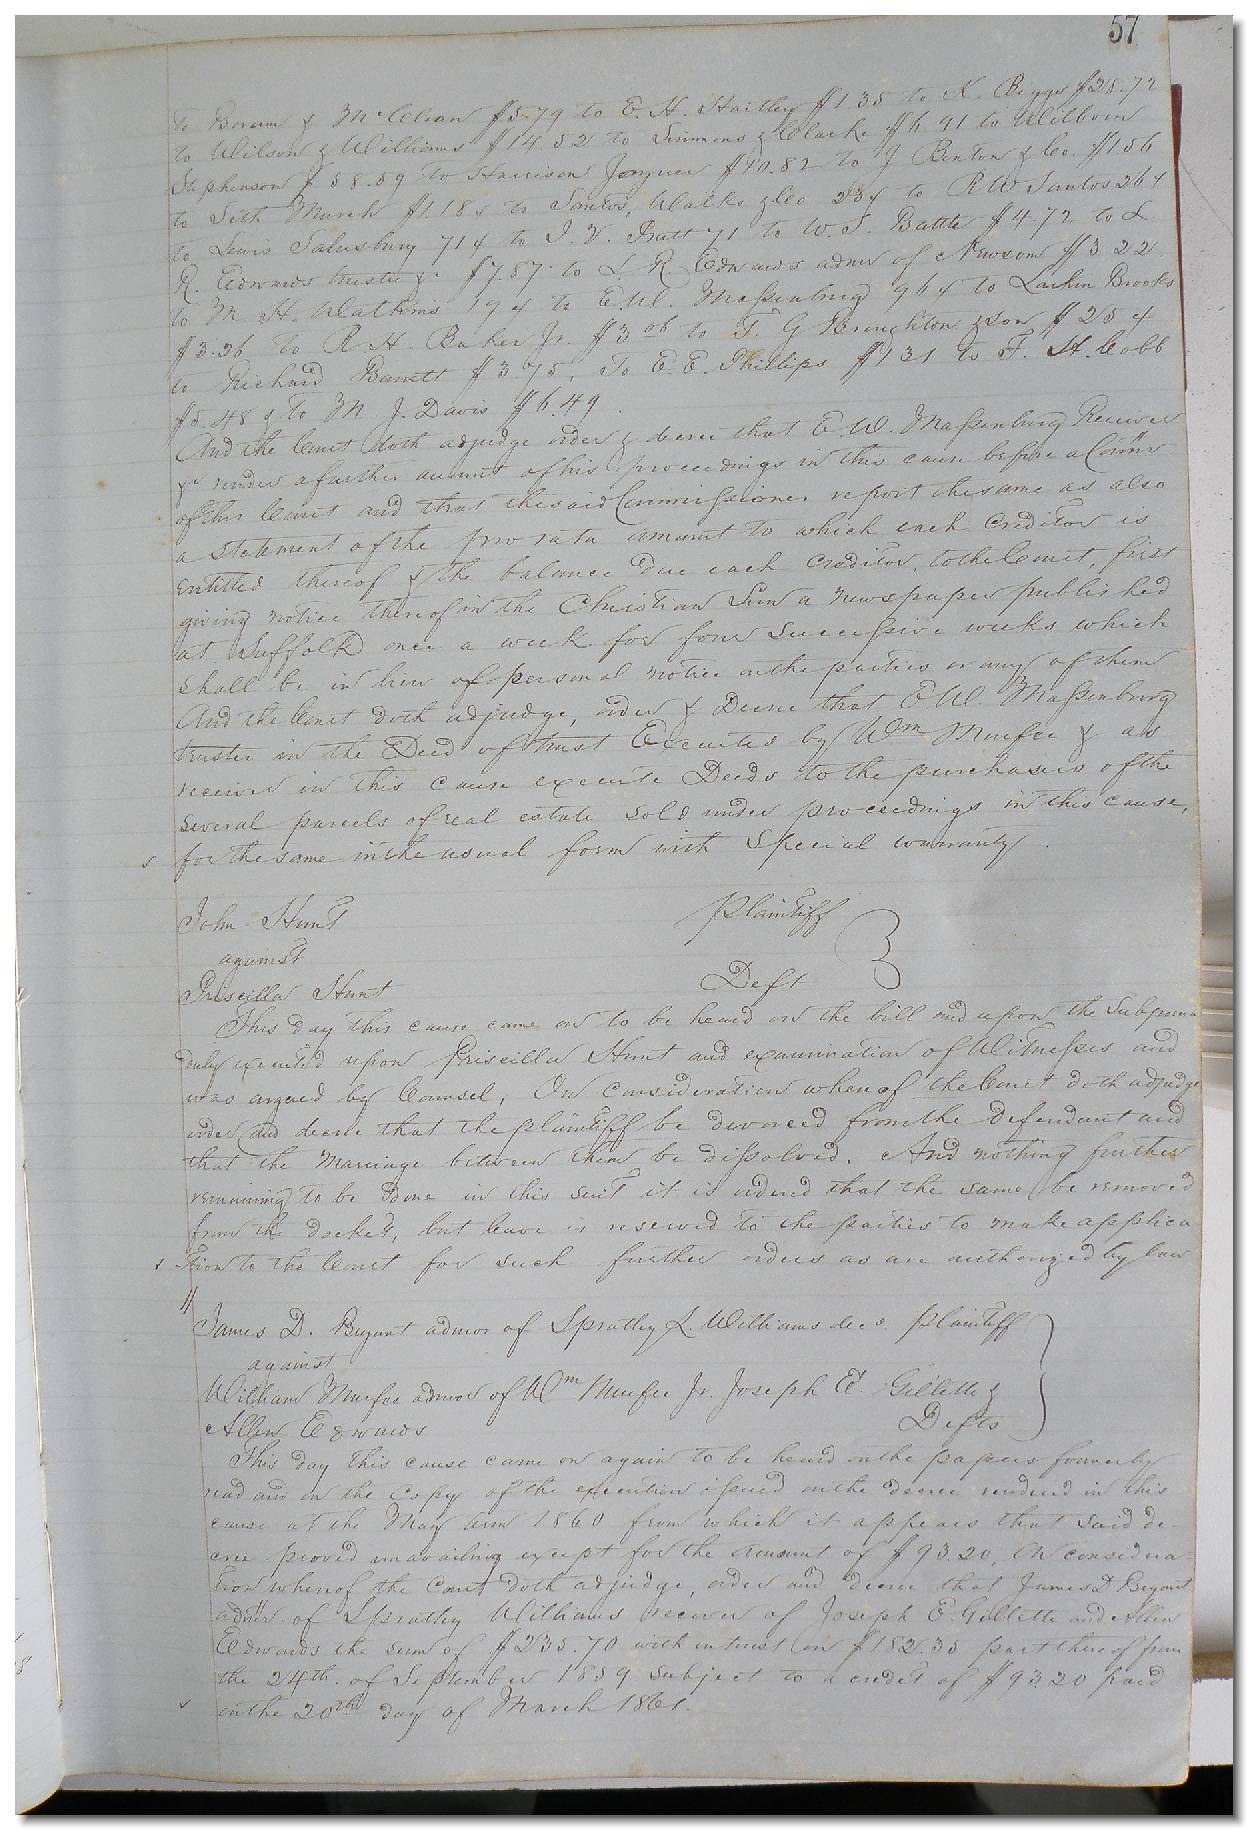 57
To Borum & McClean $5.79 to E. H. Hartley $1 35 to K. Biggs $28.72
to Wilson & Williams $14.52 to Simmons & Clarke $6.91 to Wilborn
Stephenson $58.59 to Harrison Joyner $10.82 to J Benton & Co. $1 56
to Seth March $1.18 to Santos, Walke & Co 23¢ to R W Santos 26¢
to Lewis Salusbury 71¢ to J. V. Pratt 71 to W. S. Battle $4.72 to L
R. Edwards trustee &c $7.57 to L R Edwards admr of Newsom $3 22
to M H. Watkins 19¢ to E W. Maßenburg 96¢ to Larkin Brooks
$3.36 to R H. Baker Jr. $3 06 to T. G Broughton & Son $2 54
to Richard Barrett $3.75, To E. E. Phillips $1 31 to T. H. Cobb
$5.48 & to M J. Davis $6.49.
And the Court doth adjudge order & decree that E. W. Maßenburg Receiver
&c render a further account of his proceedings in this cause before a Commr
of this Court and that the said Commißioner report the same as also
a statement of the pro rata amount to which each Creditor is
entitled thereof & the balance due each Creditor, to the Court, first
giving notice thereof in the Christian Sun a newspaper published
at Suffolk once a week for four Succeßive weeks which
shall be in lieu of personal notice on the parties or any of them
And the Court doth adjudge, order & Decree that E W. Maßenburg
trustee in the Deed of trust Executed by Wm Murfee & as
receiver in this cause execute Deeds to the purchasers of the
several parcels of real estate sold under proceedings in this cause,
for the same in the usual form with Special warranty.
John Hunt Plaintiff
against
Priscilla Hunt Deft
This day this cause came on to be heard on the bill and upon the Subpoena
duly executed upon Priscilla Hunt and examination of Witneßes and
was argued by Counsel, On consideration whereof the Court doth adjudge
order and decree that the plaintiff be divorced from the Defendant and
that the Marriage between them be dißolved. And nothing further
remaining to be done in this suit it is ordered that the same be removed
from the docket, but leave is reserved to the parties to make applica
tion to the Court for such further orders as are authorized by law
James D. Bryant admor of Spratley L. Williams decd. Plaintiff
against
William Murfee admor of Wm Murfee Jr. Joseph E. Gillette &
Allen Edwards Defts
This day this cause came on again to be heard on the papers formerly
read and on the Copy of the execution ißued on the decree rendered in this
cause at the May term 1860 from which it appears that said de
cree proved unavailing except for the amount of $93.20, On considera
tion whereof the Court doth adjudge, order and decree that James D Bryant
admr. of Spratley Williams recover of Joseph E. Gillette and Allen
Edwards the sum of $235.70 with interest on $182.35 part thereof from
the 24th. of September 1859 subject to a credit of $93.20 paid
on the 20th day of March 1861.